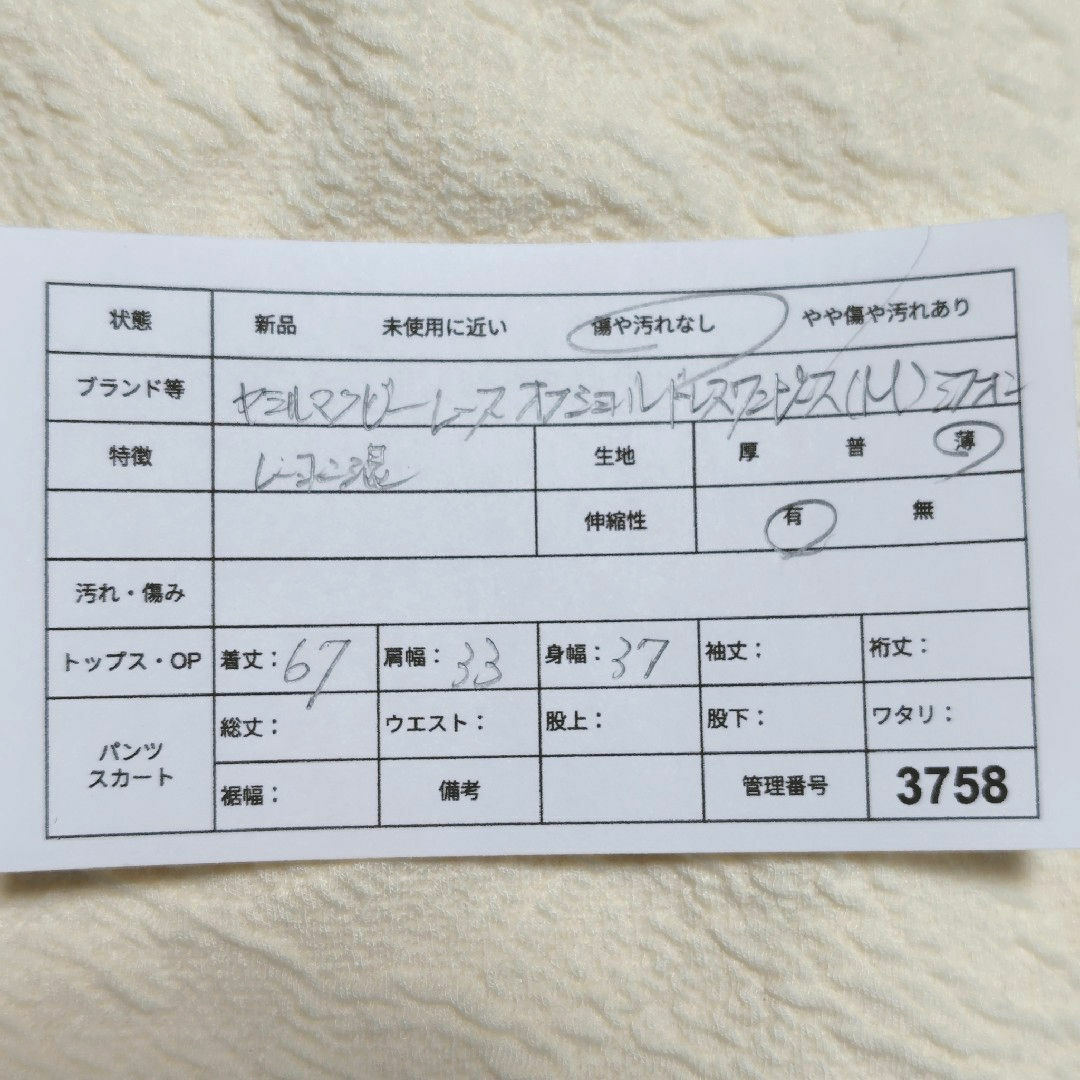 状態 新品 未使用に近い 傷や汚れなし やや傷や汚れあり
ブランド等 ヤミルマンビー レース オフショルドレスワンピース(M) シフォン
特徴 レーヨン混 生地 厚 普 薄
伸縮性 有 無
汚れ・傷み
トップス・OP 着丈:67 肩幅:33 身幅:37 袖丈: 裄丈:
パンツ スカート 総丈: ウエスト: 股上: 股下: ワタリ:
裾幅: 備考 管理番号 3758